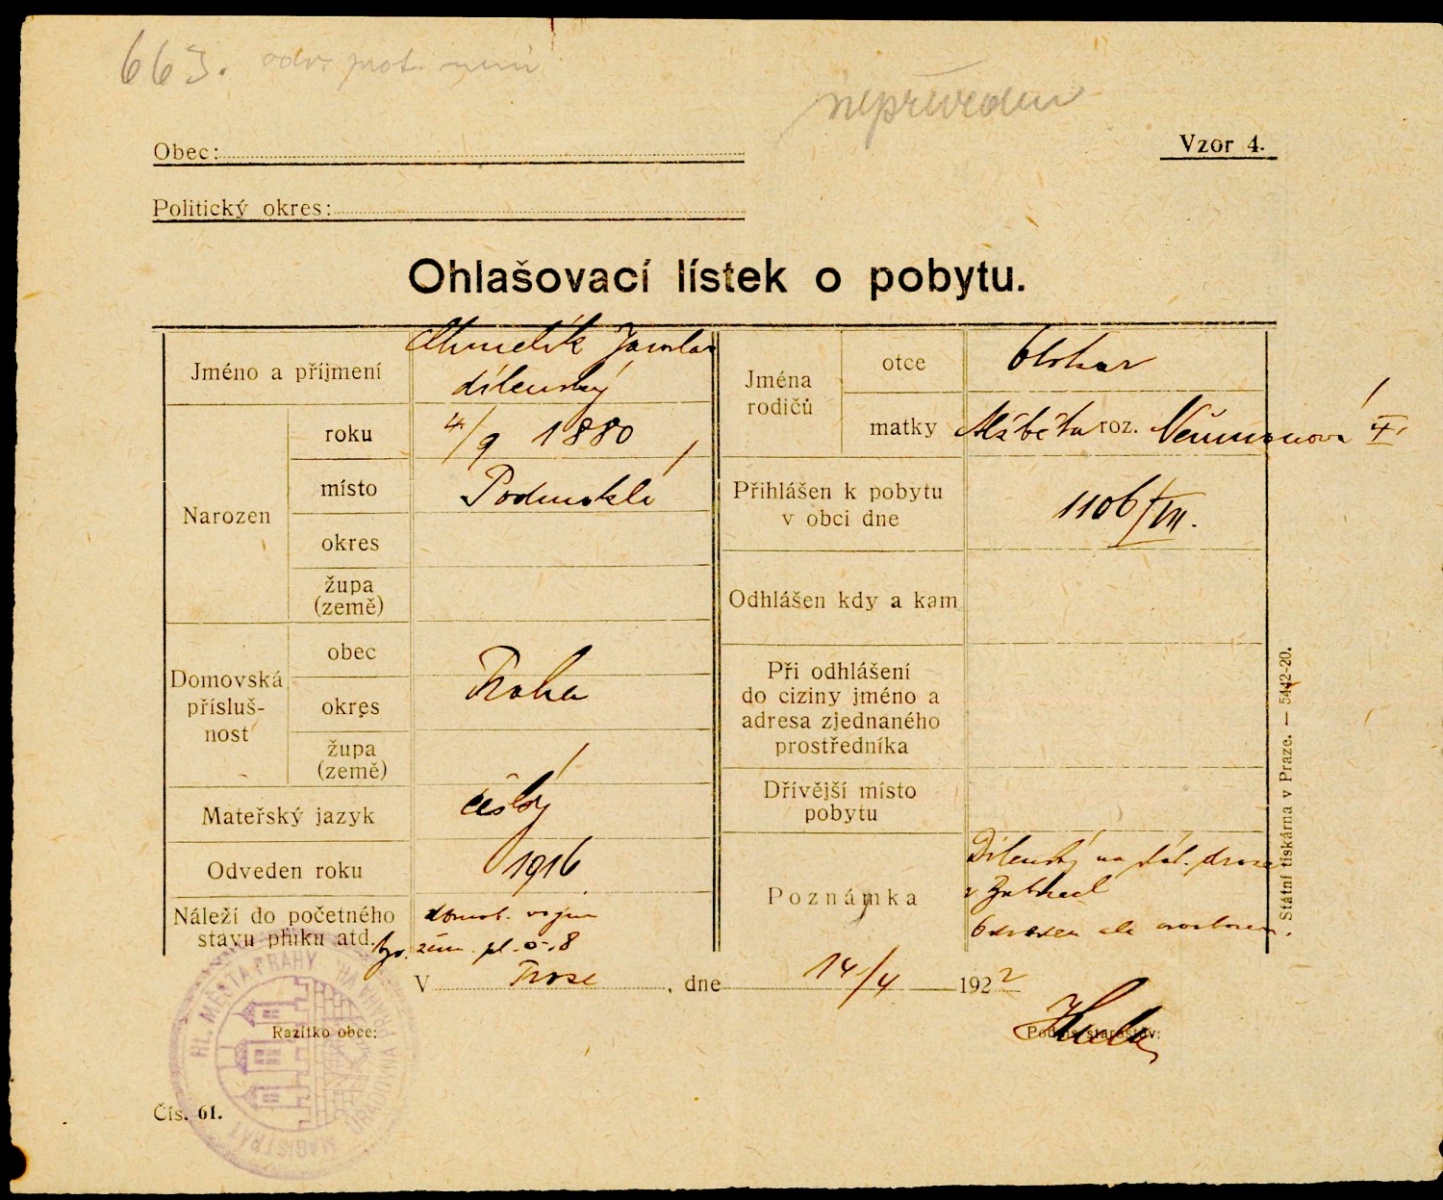 663. odv. prot. není
nepřiveden
Obec:
Vzor 4.
Politický okres:
Ohlašovací lístek o pobytu.
Jméno a příjmení
Chmelík Jaroslav
dílenský
Narozen
roku
4/9 1880
místo
Podmokli
okres
župa
(země)
Domovská
přísluš-
nost
obec
okres
župa
(země)
Praha
Mateřský jazyk
český
Odveden roku
1916
Náleží do početného
stavu pluku atd.
pl. 8
Jména
rodičů
otce
Otokar
matky
Alžběta roz. Neumanová
Přihlášen k pobytu
v obci dne
1106/VII.
Odhlášen kdy a kam
Při odhlášení
do ciziny jméno a
adresa zjednaného
prostředníka
Dřívější místo
pobytu
Poznámka
Dílenský na
V Praze, dne 14/4 1922
Razítko obce:
Podpis starostův:
HL. MĚSTA PRAHY
MAGISTRÁT
Čís. 61.
Státní tiskárna v Praze. — 5442-20.